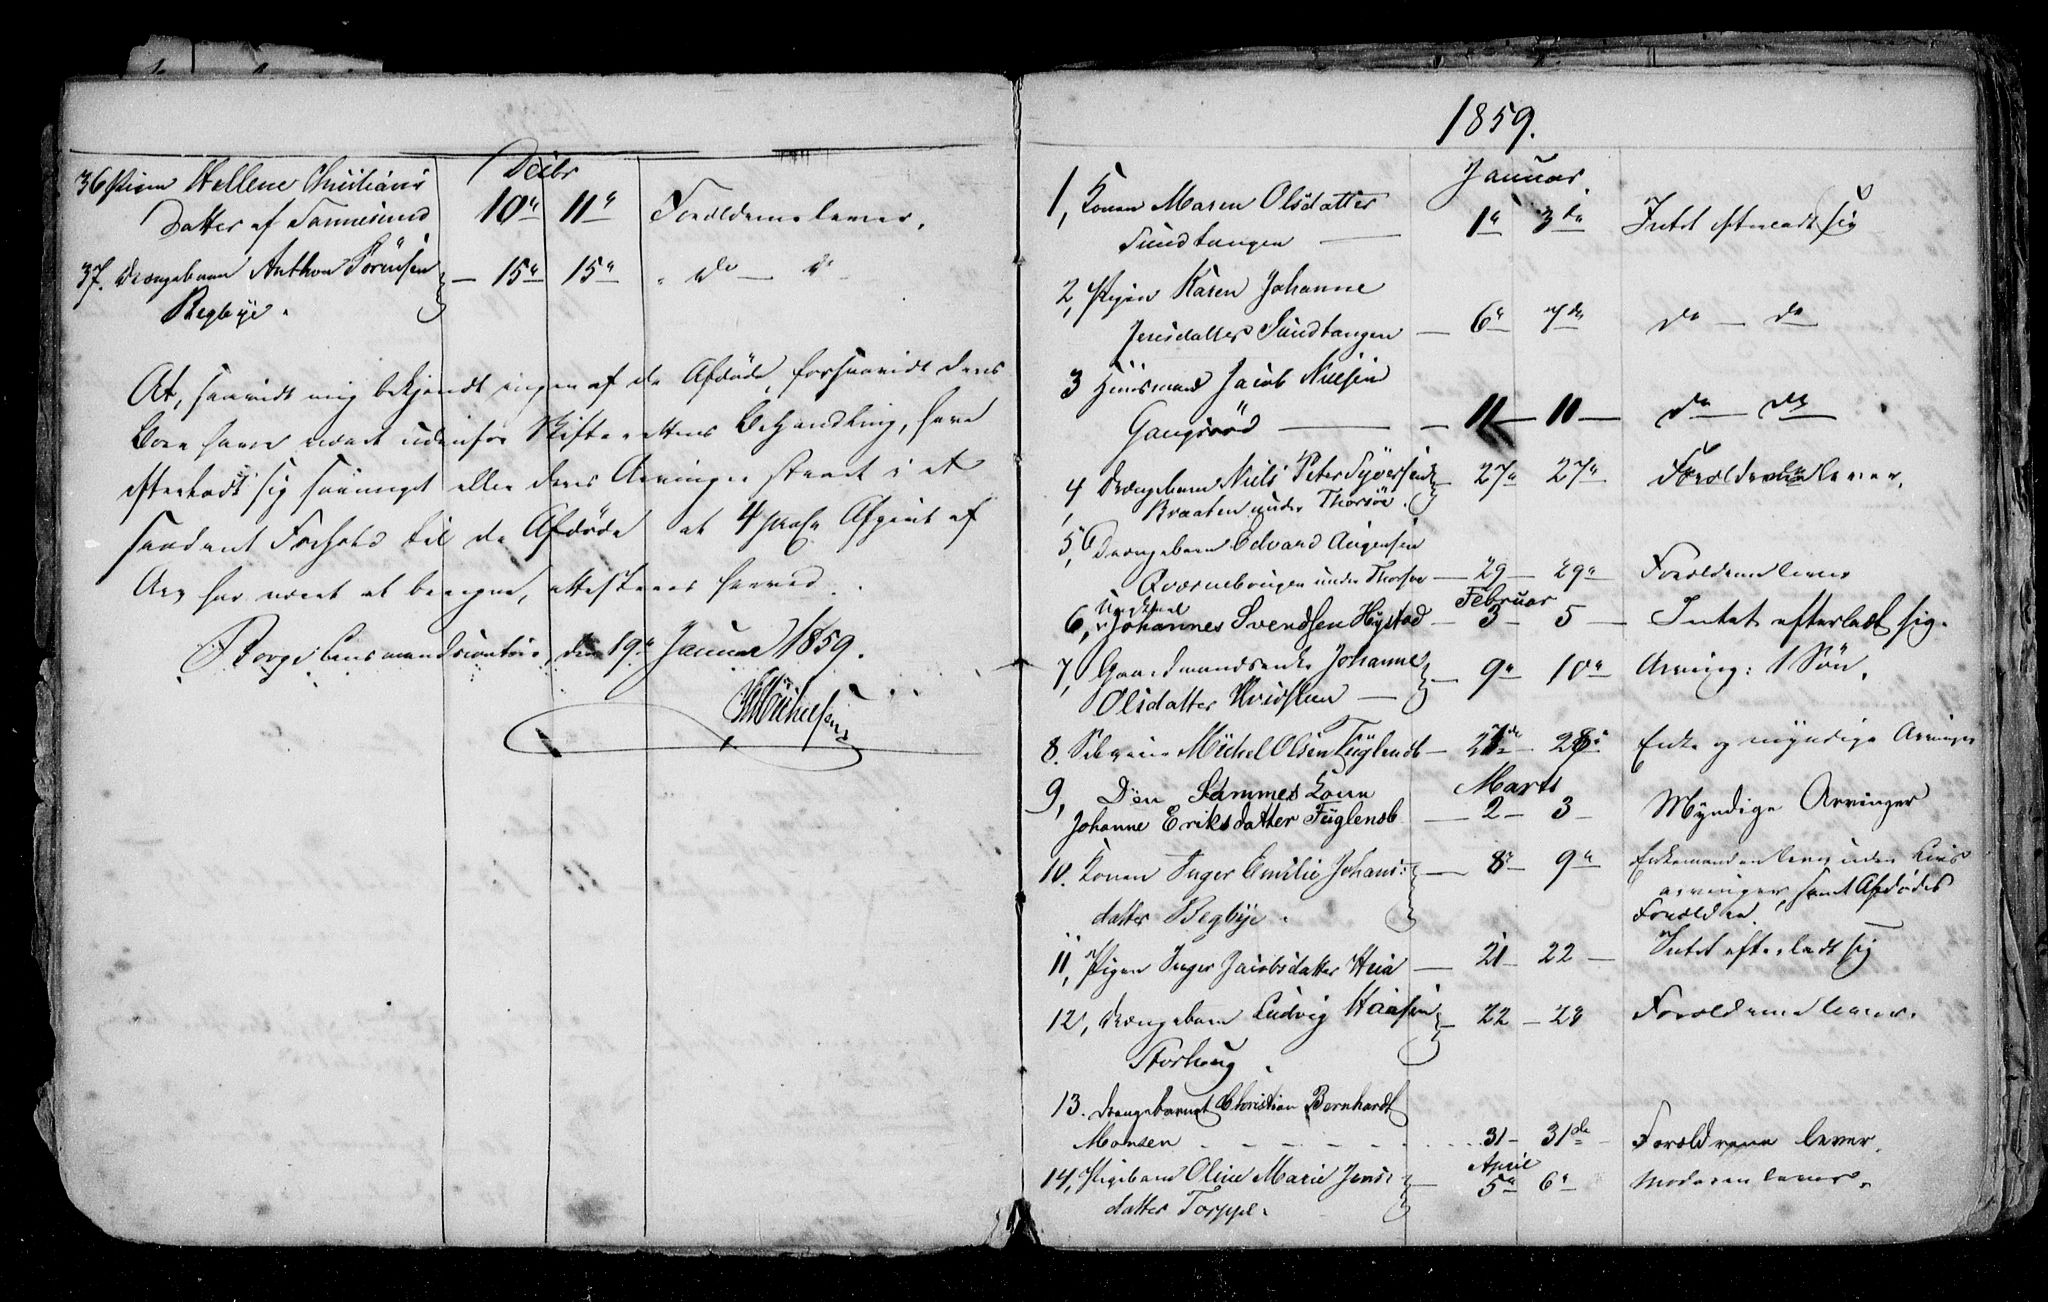 36 Pigen Hellene Christians
Datter af Sannesund
Decbr
10de 11te Forældrene lever.
37. Drængebarn Anthon Sørensen
Begbye.
15de 15de do do
At, saavidt mig bekjendt ingen af de Afdøde, forsaavidt deres
Boe have været udenfor Skifterettens Behandling, have
efterladt sig saameget eller deres Arvinger staaet i et
saadant Forhold til de Afdøde at 4 proCt Afgivt af
Arv har været at beregne, attesteres herved.
Borge Lensmandscontoir den 19de Januar 1859.
1859.
Januar.
1, Konen Maren Olsdatter
Sundtangen
1ste 3die Intet efterladt sig
2, Pigen Karen Johanne
Jensdatter Sundtangen 6te 7de do do
3 Huusmand Jacob Nielsen
Gangsrød 11 11 do do
4, Drængebarn Niels Peter Syversen
Braaten under Thorsøe.
27de 27de Forældrene lever.
5, Drængebarn Edvard Augensen
Qværnebougen under Thorsøe 29 29de Forældrene lever
Februar
6, Ungkarl
Johannes Svendsen Hystad 3 5 Intet efterladt sig.
7, Gaardmandsenke Johanne
Olsdatter Hvidsteen
9de 10de Arving: 1 Søn.
8. Selveier Michel Olsen Fuglendb 27de 28de Enke og myndige Arvinger
Marts
9, Den Sammes Kone
Johanne Eriksdatter Fuglendb 2 3 Myndige Arvinger
10. Konen Inger Emilie Johans:
datter Begbye.
8de 9de Enkemanden lever uden Livs
arvinger, samt Afdødes
Forældre.
11, Pigen Inger Jacobsdatter Heia 21 22 Intet efterladt sig
12, Drængebarn Ludvig Hansen
Storhoug.
22 23 Forældrene lever.
13. Drengebarnet Christian Bernhardt
Monsen 31 31de Forældrene lever.
April
14, Pigebarn Oline Marie Jens:
datter Torppe.
5te 6te Moderen lever.